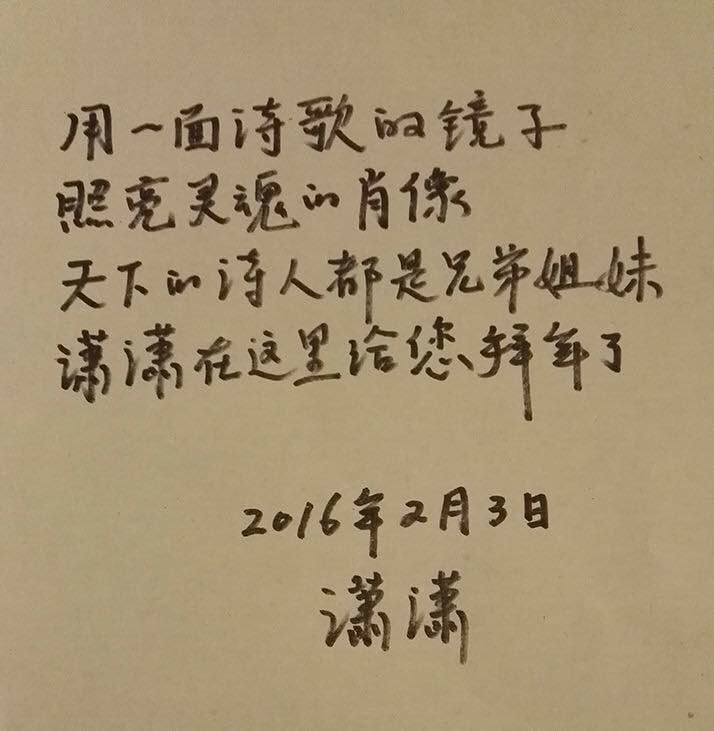 用一面诗歌的镜子
照亮灵魂的肖像
天下的诗人都是兄弟姐妹
潇潇在这里给您拜年了
2016年2月3日
潇潇